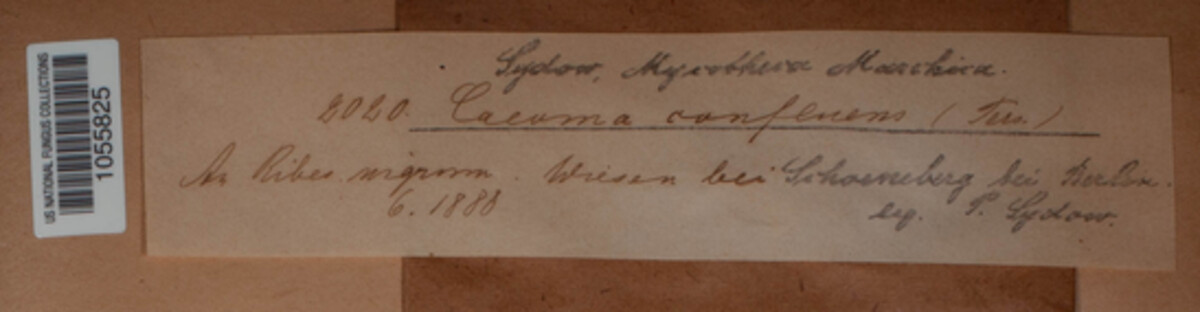 US NATIONAL FUNGUS COLLECTIONS
1055825
Sydow, Mycotheca Marchica.
2020. Caeoma confluens (Pers.)
An Ribes nigrum. Wiesen bei Schoeneberg bei Berlin.
6. 1888
leg. P. Sydow.